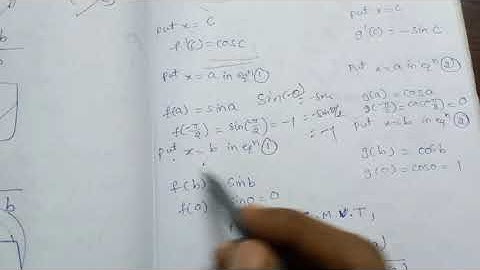 put x = c
f'(c) = cosc
put x = a in eqⁿ ①
f(a) = sina
sin(-θ) = -sinθ
f(-π/2) = sin(-π/2) = -1
= -sinπ/2
= -1
put x = b in eqⁿ ①
f(b) = sinb
f(0) = sin0 = 0
M.V.T,
put x = c
g'(c) = -sinc
put x = a in eqⁿ ②
g(a) = cosa
g(-π/2) = cos(-π/2) = 0
put x = b in eqⁿ ②
g(b) = cosb
g(0) = cos0 = 1